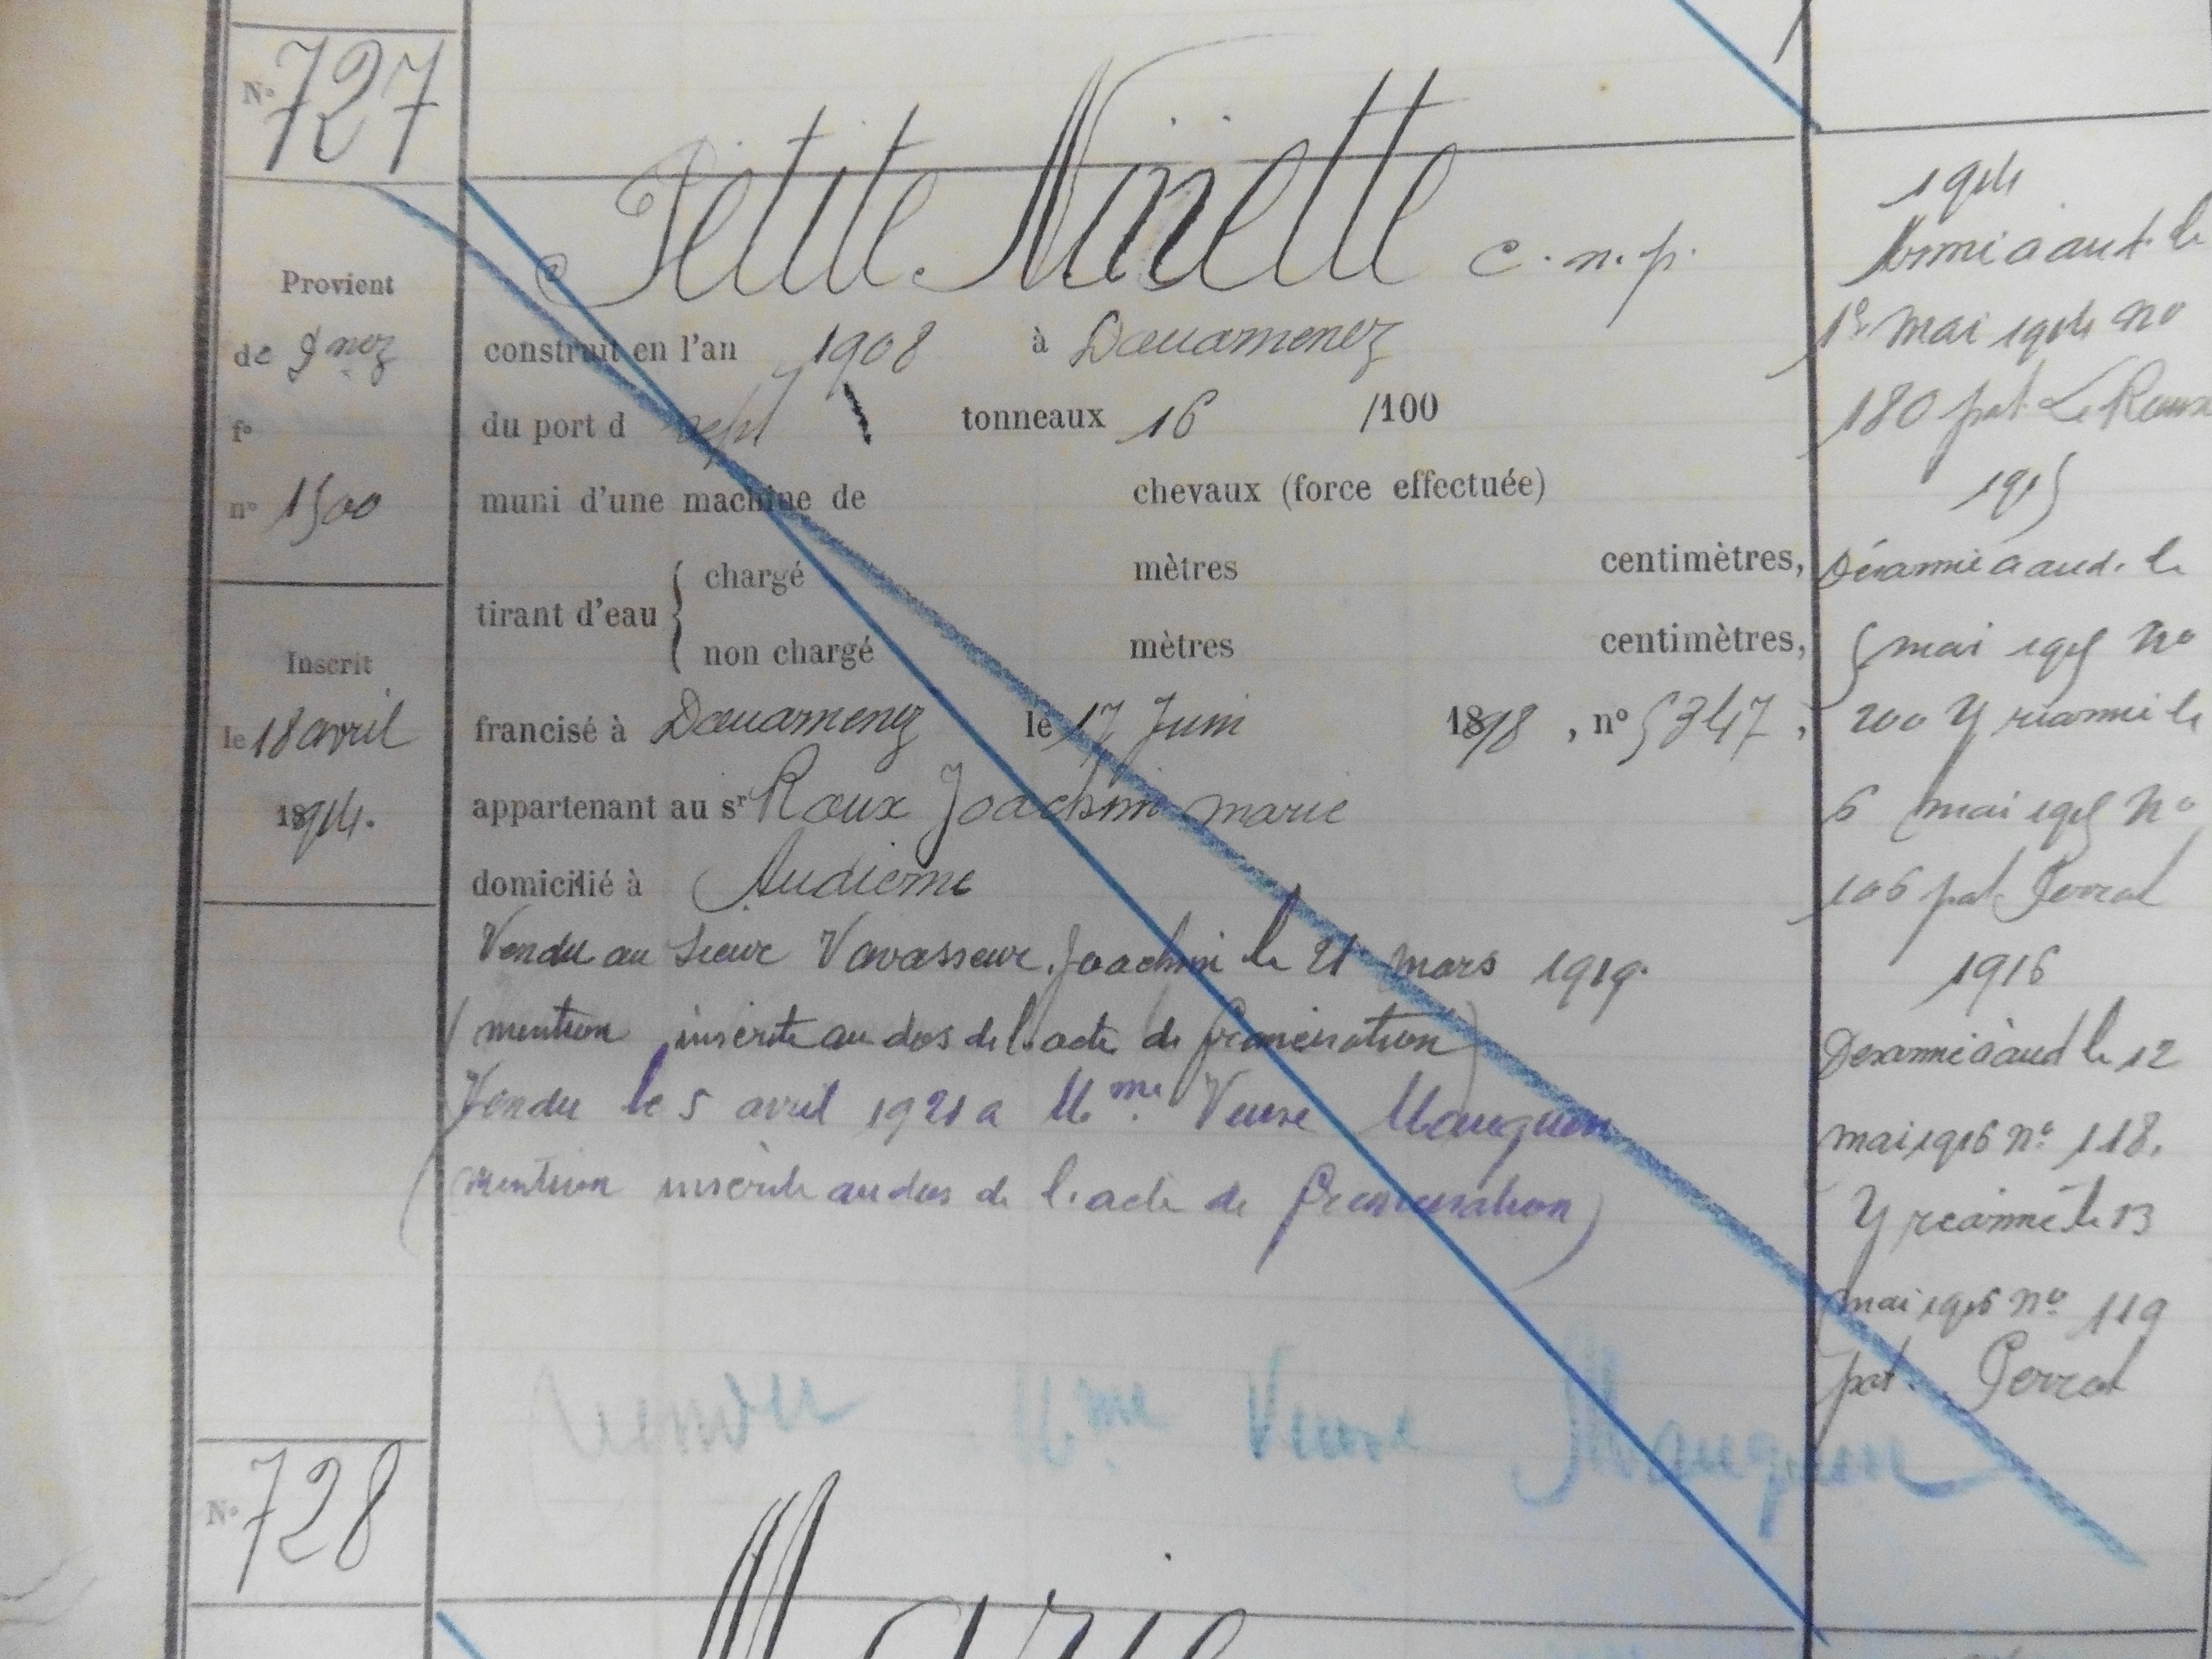 N° 727
Petite Ninette c.n.p.
Provient
de Dnez
f°
n° 1500
Inscrit
le 18 avril
1914.
construit en l'an 1908 à Douarnenez
du port d sept tonneaux 16 /100
muni d'une machine de chevaux (force effectuée)
tirant d'eau { chargé mètres centimètres,
non chargé mètres centimètres,
francisé à Douarnenez le 17 Juin 1898, n° 5347,
appartenant au sr Roux Joachim marie
domicilié à Audierne
Vendu au Sieur Vavasseur Joachim le 21 mars 1919.
(mention inscrite au dos de l'acte de francisation)
Vendu le 5 avril 1921 a Mme Veuve Mauguen
(mention inscrite au dos de l'acte de francisation)
vendu Mme Veuve Mauguen
1914
Armé a aud. le
1er mai 1914 no
180 pat. Le Roux
1915
Désarmé a aud. le
5 mai 1915 no
200 Y réarmé le
6 mai 1915 no
106 pat. Perrot
1916
Desarmé à aud le 12
mai 1916 no 118.
Y réarmé le 13
mai 1916 no 119
pat. Perrot
N° 728
Marie